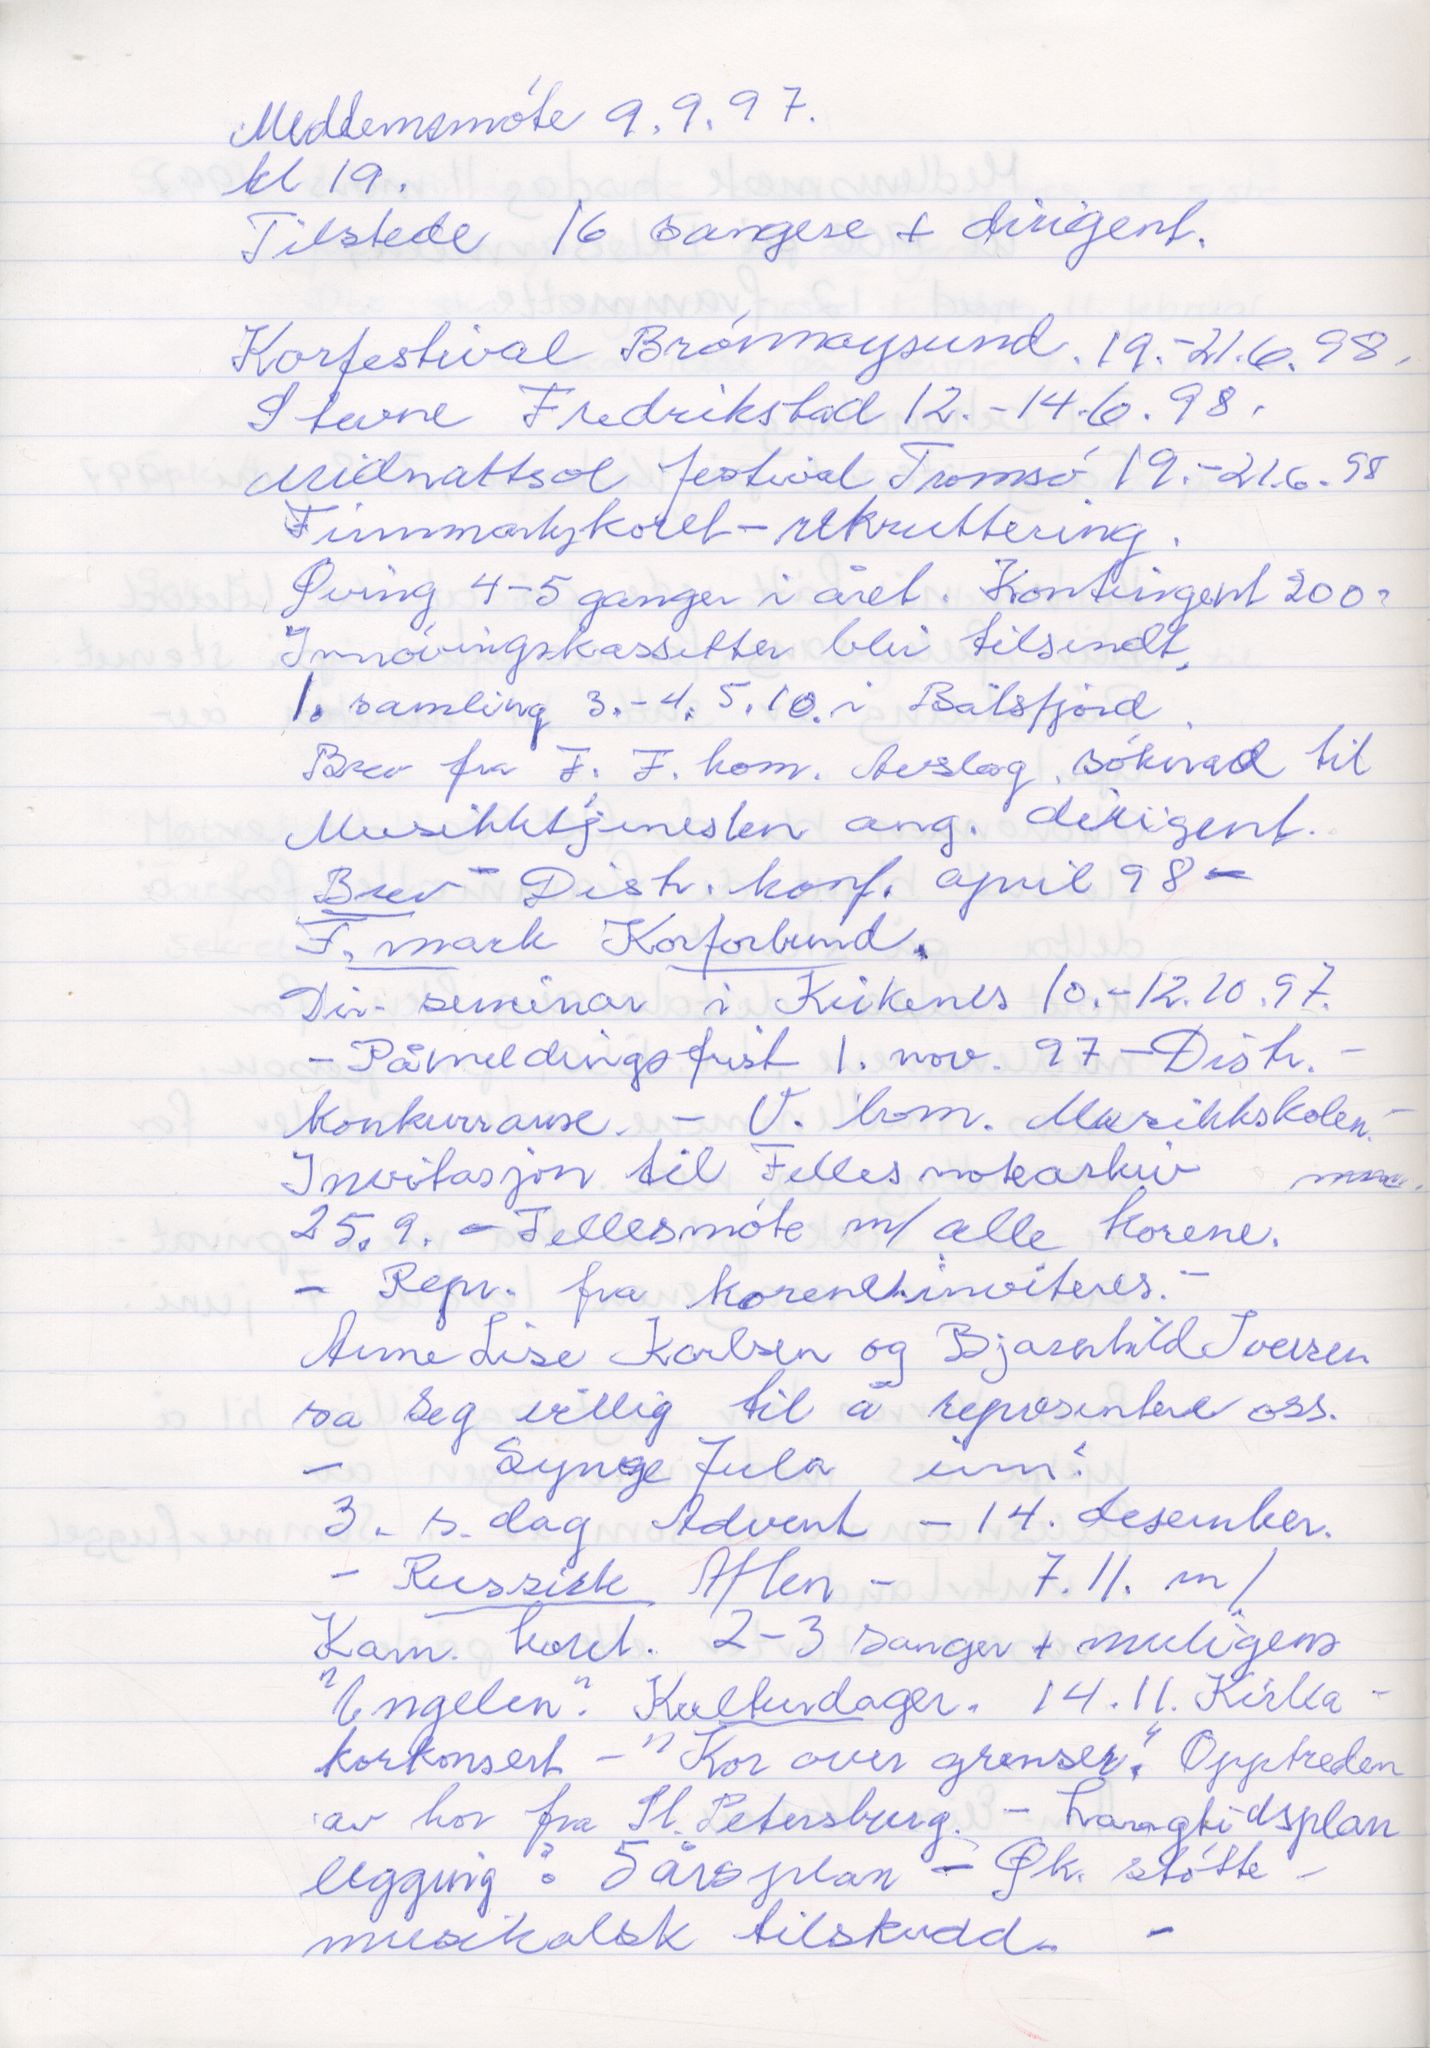 Medlemsmøte 9.9.97.
kl 19.
Tilstede 16 sangere + dirigent.
Korfestival Brønnøysund. 19.-21.6.98.
Stevne Fredrikstad 12.-14.6.98.
Midnattsol festival Tromsø 19.-21.6.98
Finnmarkskoret - rekruttering.
Øving 4-5 ganger i året. Kontingent 200,-
Innøvingskassetter blir tilsendt.
1. samling 3.-4. 5.10. i Båtsfjord
Brev fra F. F. kom. Avslag søknad til
Musikktjenesten ang. dirigent.
Brev - Distr. konf. april 98 -
F. mark Korforbund.
Dir- seminar i Kirkenes 10.-12.10.97.
- Påmeldingsfrist 1. nov. 97 - Distr. -
konkurranse. - V. kom. Musikkskolen. -
Invitasjon til Felles notearkiv
25.9. - Fellesmøte m/ alle korene.
- Repr. fra korene inviteres. -
Anne Lise Karlsen og Bjarnhild Iversen
sa seg villig til å representere oss.
- Synge Jula inn:
3. s. dag Advent - 14. desember.
- Russisk Aften - 7.11. m/
Kam. koret. 2-3 sanger + muligens
"Engelen". Kulturdager. 14.11. Kirka -
korkonsert - "Kor over grenser." Opptreden
av kor fra St. Petersburg. - Langtidsplan
legging: 5 årsplan - Øk. støtte -
musikalsk tilskudd. -